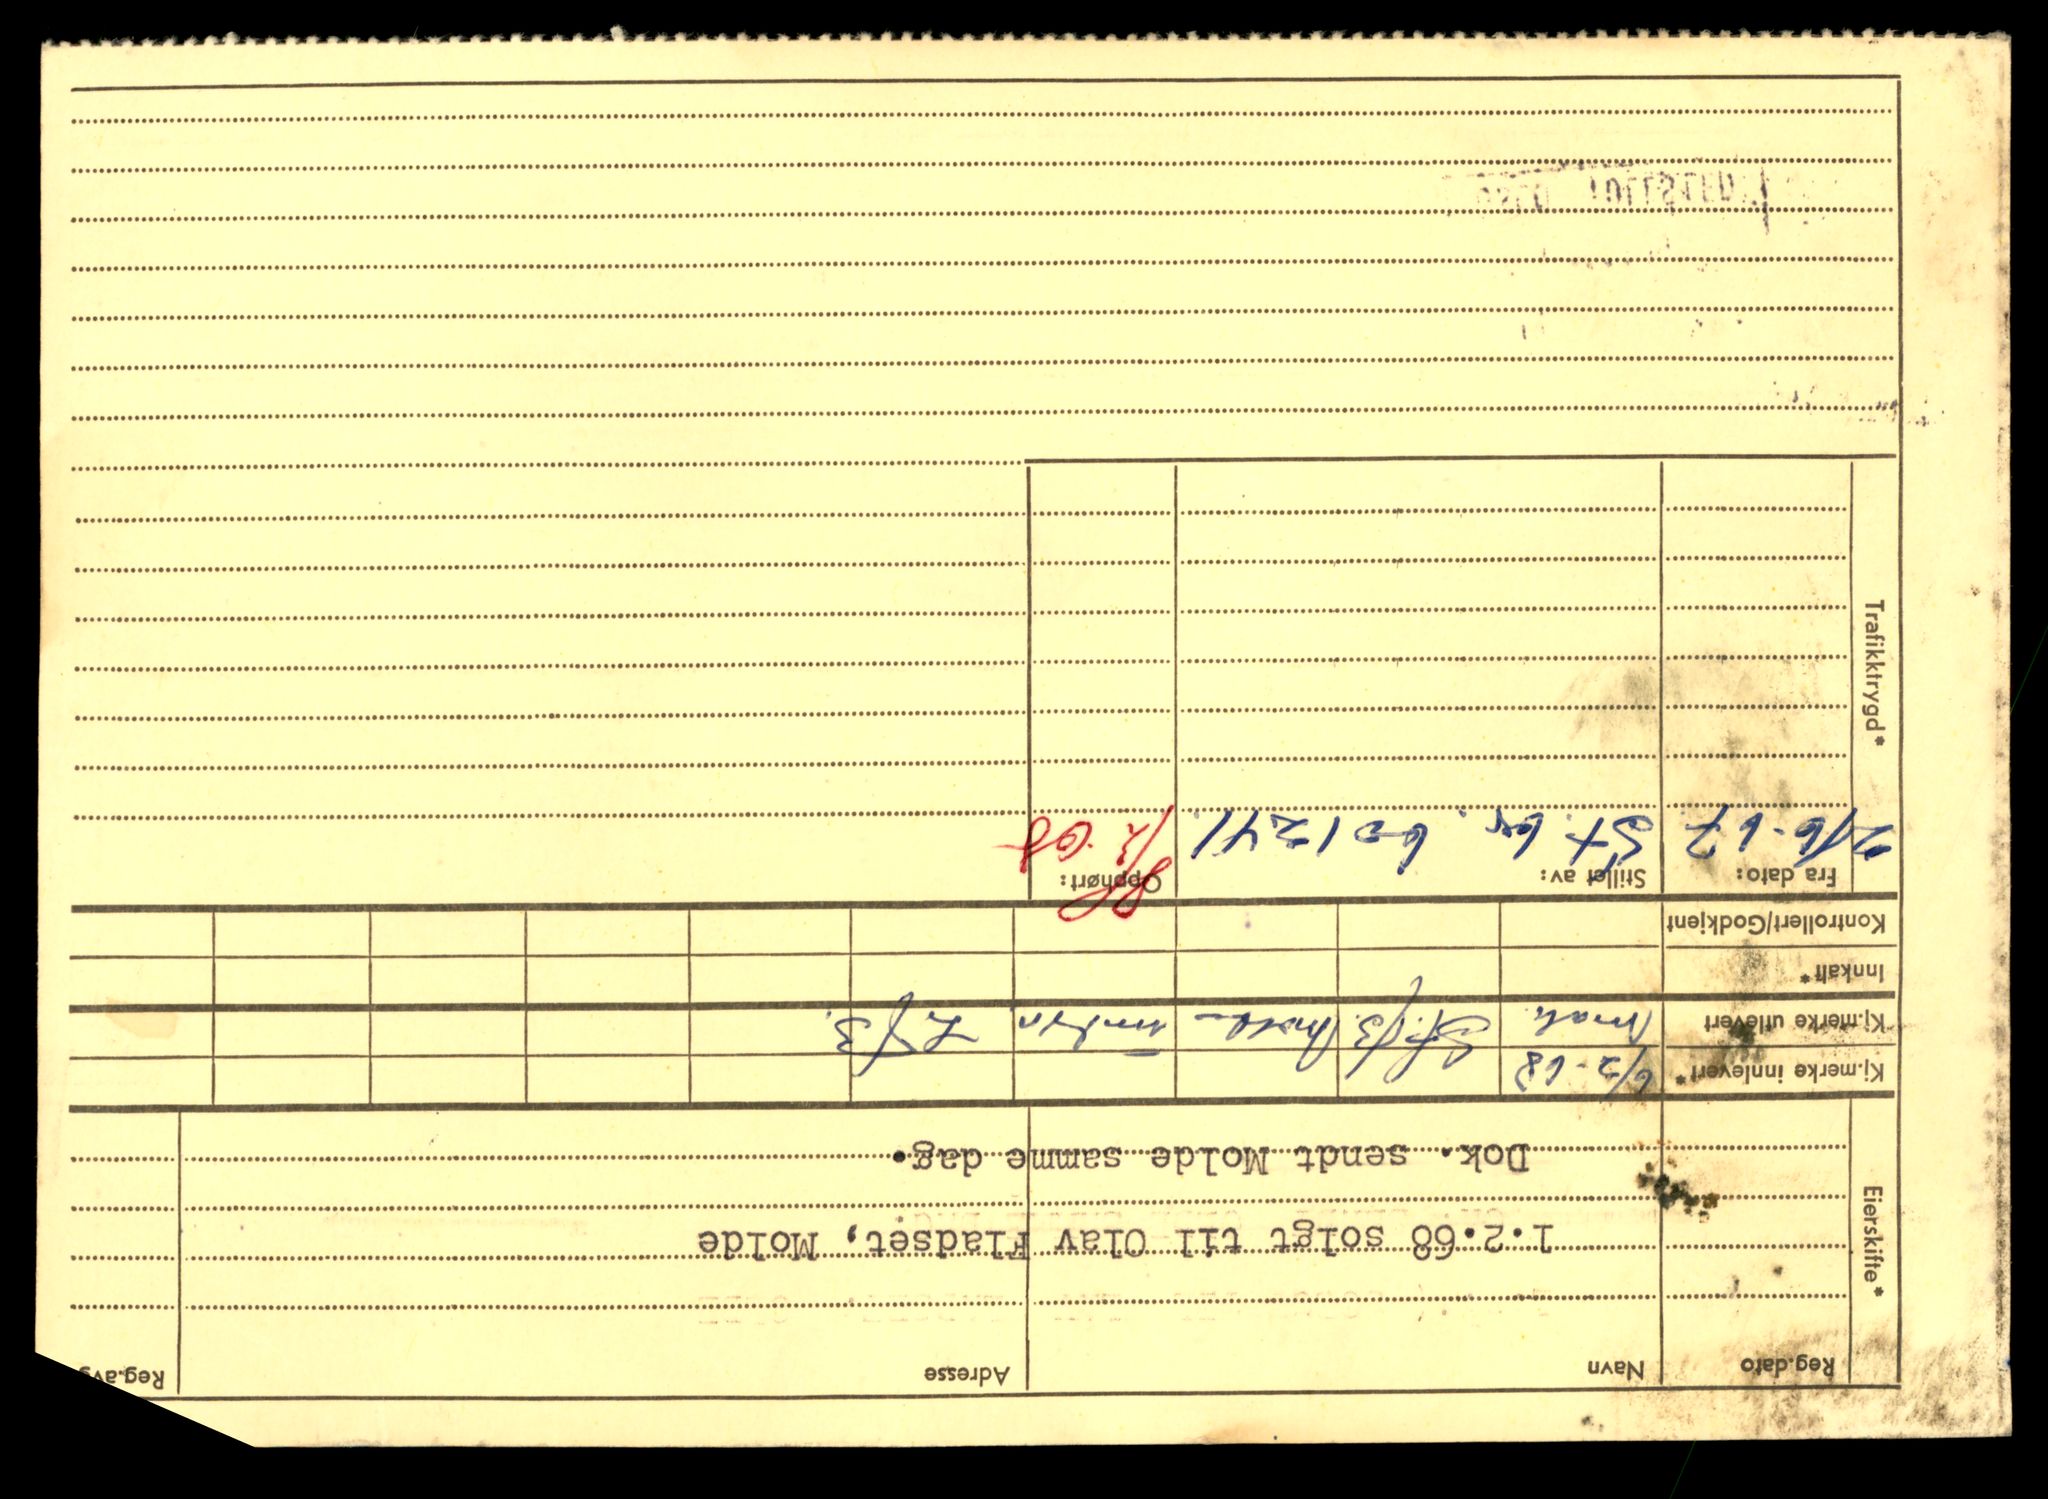 Eierskifte*
Reg.dato Navn Adresse Reg.avg
1.2.68 solgt til Olav Fladset, Molde
Dok. sendt Molde samme dag.
Kj.merke innlevert* 6/2-68
Kj.merke utlevert
Innkalt*
Kontrollert/Godkjent
Trafikktrygd*
Fra dato: Stillet av: Opphørt:
2/6-67 St. br. 601241 8/2.68
OSLO TOLLSTED